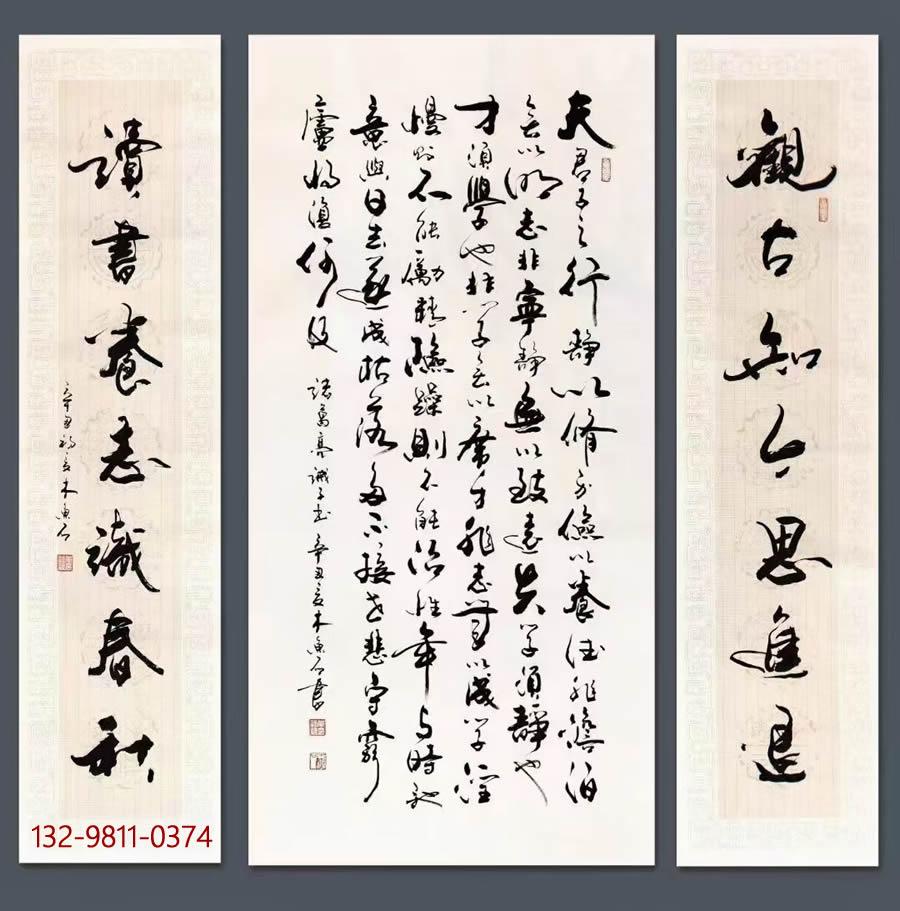 觀古知今思進退
夫君子之行靜以修身儉以養德非澹泊
無以明志非寧靜無以致遠夫學須靜也
才須學也非學無以廣才非志無以成學淫
慢則不能勵精險躁則不能治性年與時馳
意與日去遂成枯落多不接世悲守窮
廬將復何及 諸葛亮誡子書 辛丑夏木魚石書
讀書養志識春秋
辛丑初夏木魚石
132-9811-0374